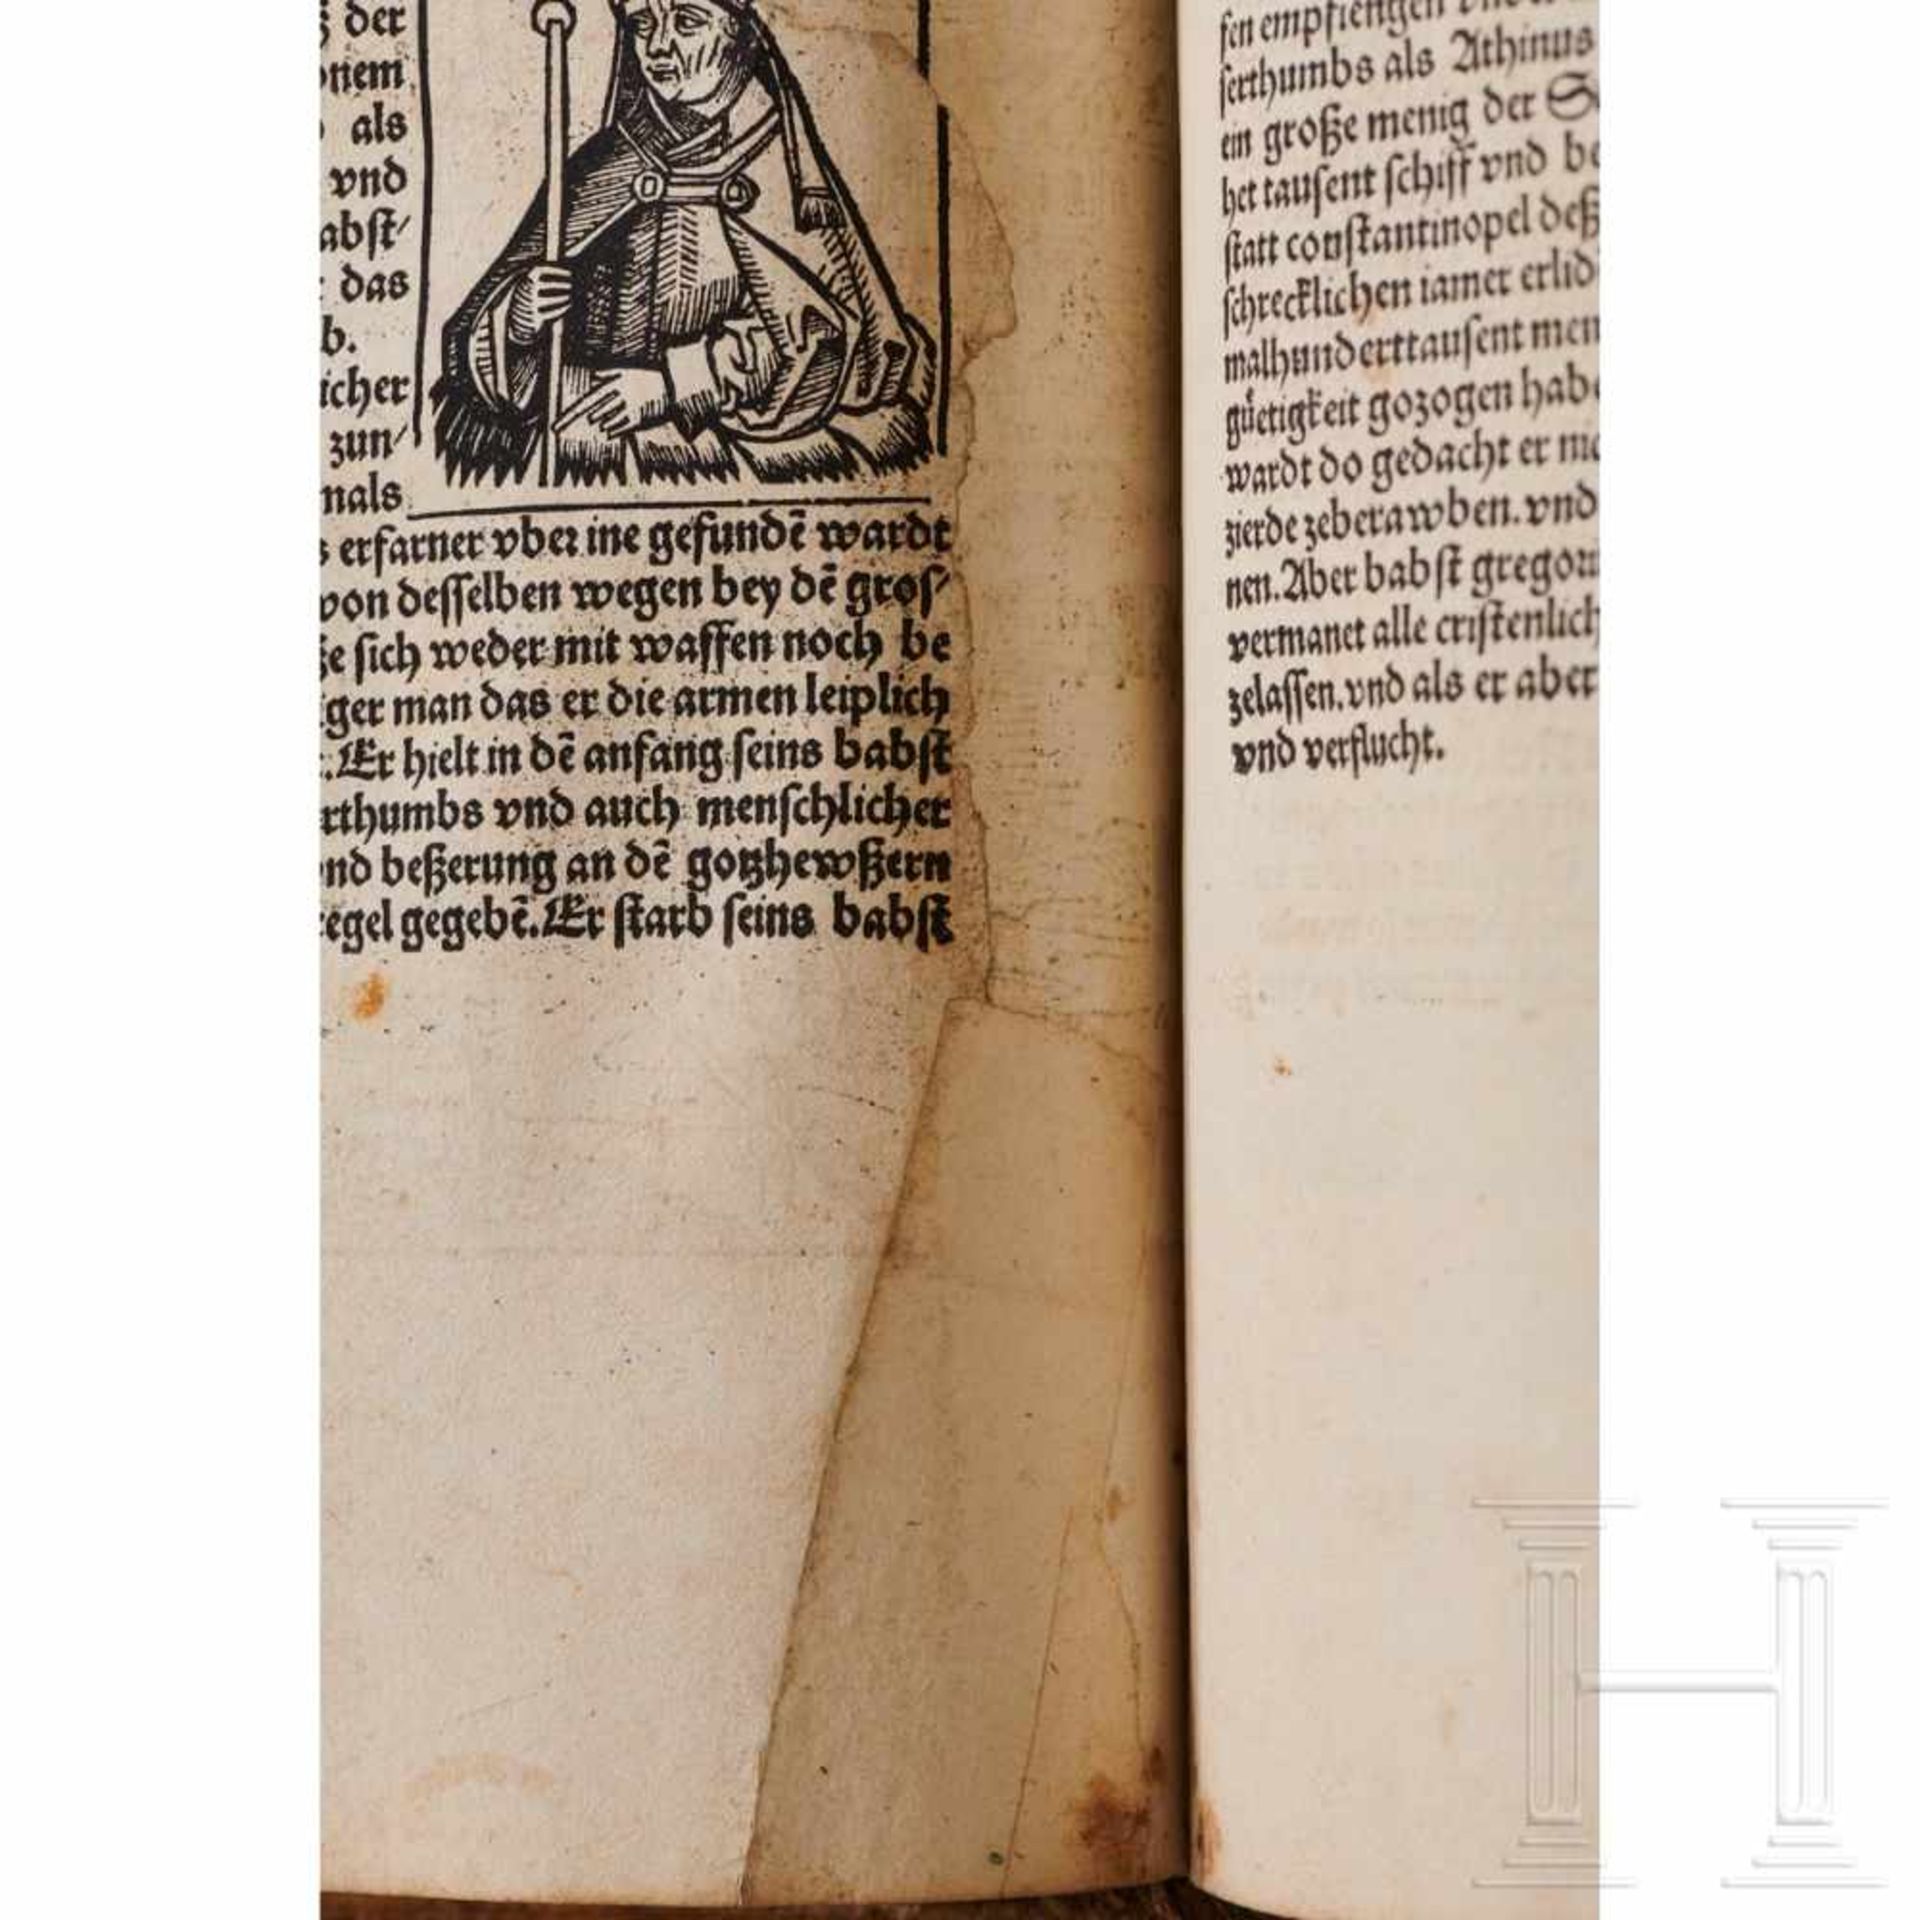 der
onem
als
vnd
abst/
das
b.
icher
zun/
mals
erfarner vber ine gefundē wardt
von desselben wegen bey dē gros/
sich weder mit waffen noch be
iger man das er die armen leiplich
Er hielt in dē anfang seins babst
rthumbs vnd auch menschlicher
nd beßerung an dē gotzhewßern
regel gegebē. Er starb seins babst
sen empfiengen
serthumbs als Athinus
ein große menig der
het tausent schiff vnd be
statt constantinopel deß
schrecklichen iamer erlid
malhunderttausent men
güetigkeit gozogen hab
wardt do gedacht er
zierde zeberawben. vnd
nen. Aber babst gregori
vermanet alle cristenlich
zelassen. vnd als er aber
vnd verflucht.
H